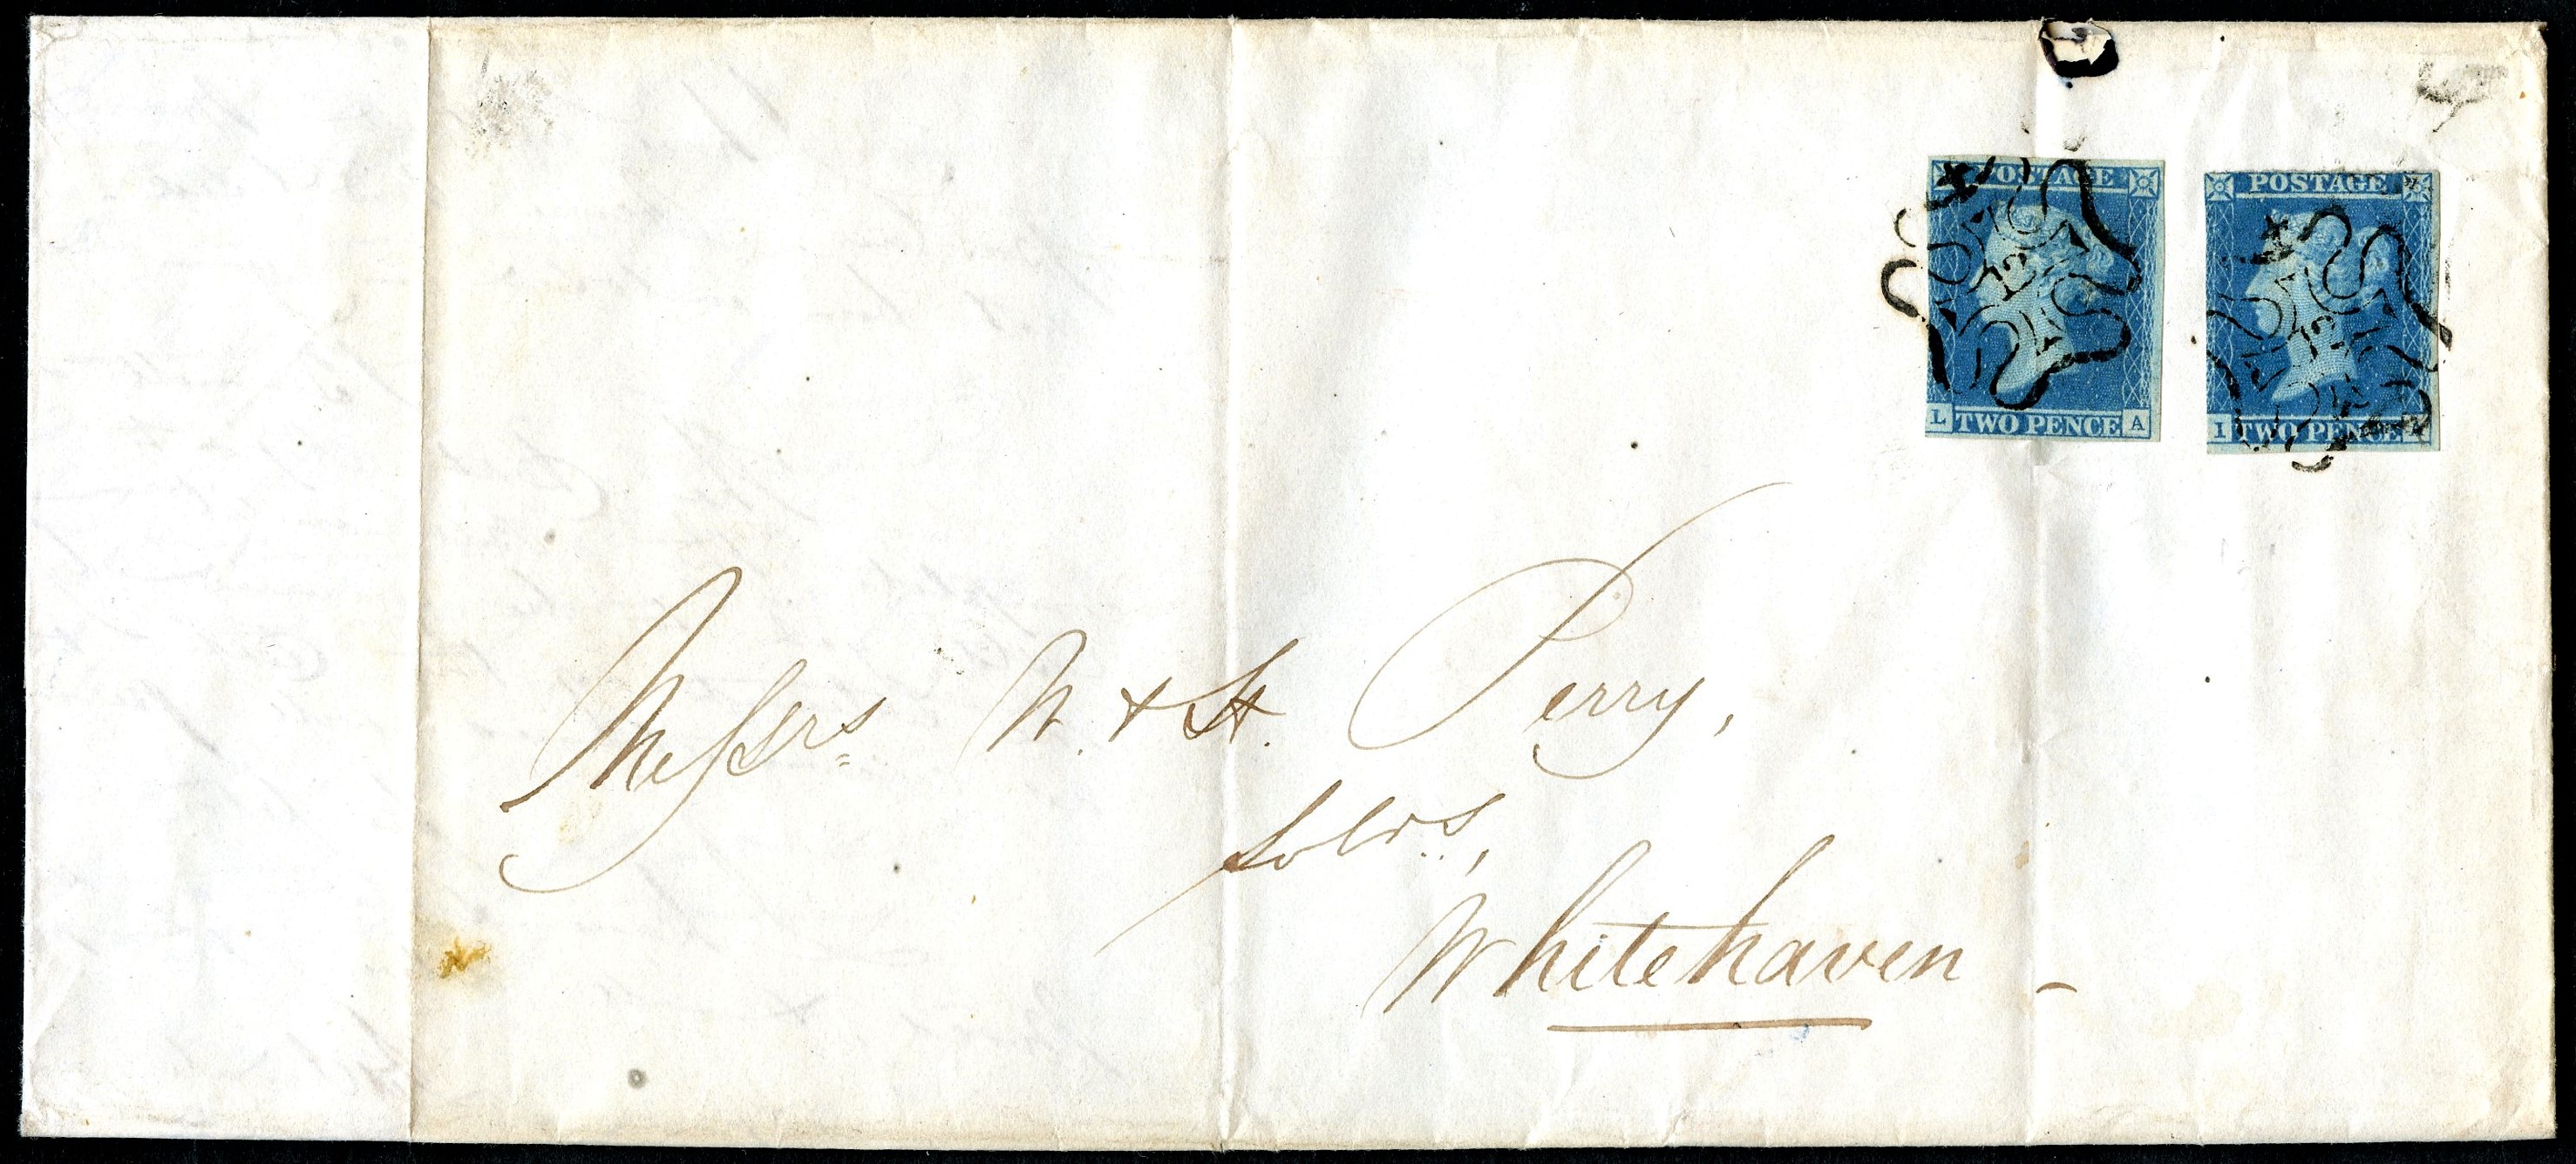 POSTAGE
12
L TWO PENCE A
POSTAGE
12
I TWO PENCE
Messrs W. & H. Perry,
Solrs,
Whitehaven